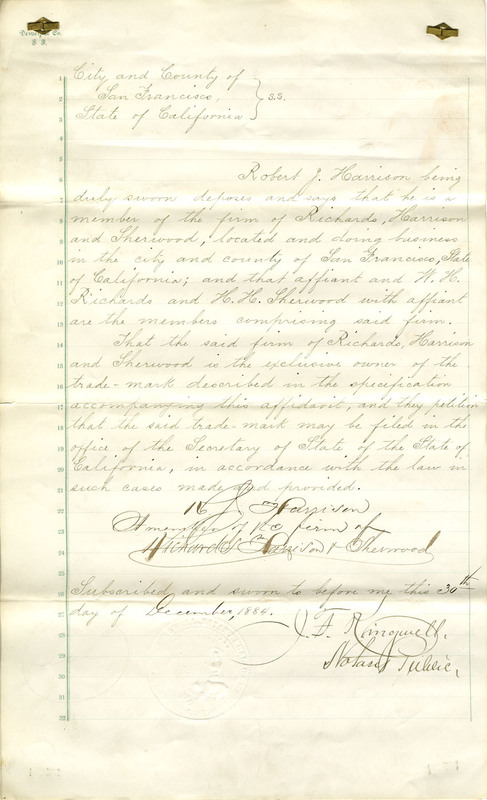 Dewey & Co.
S. F.
1 City and County of
2 San Francisco, } s.s.
3 State of California
4
5
6 Robert J. Harrison being
7 duly sworn deposes and says that he is a
8 member of the firm of Richards, Harrison
9 and Sherwood; located and doing business
10 in the city and county of San Francisco, State
11 of California; and that affiant and W. H.
12 Richards and H. H. Sherwood with affiant
13 are the members comprising said firm.
14 That the said firm of Richards, Harrison
15 and Sherwood is the exclusive owner of the
16 trade-mark described in the specification
17 accompanying this affidavit, and they petition
18 that the said trade-mark may be filed in the
19 office of the Secretary of State, of the State of
20 California, in accordance with the law in
21 such cases made and provided.
22 R J Harrison
23 A member of the firm of
24 Richards Harrison & Sherwood
25
26 Subscribed and sworn to before me this 30th
27 day of December, 1884.
28 J. F.
29 Notary Public.
30
31
32